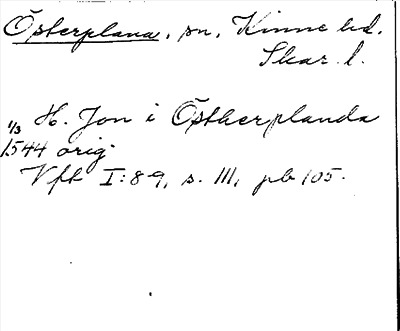 Österplana, sn, Kinne hd.
Skar. l.
H. Jon i Östherplanda
1/3
1544 orig.
Vft I:8-9, s. 111, pb 105.